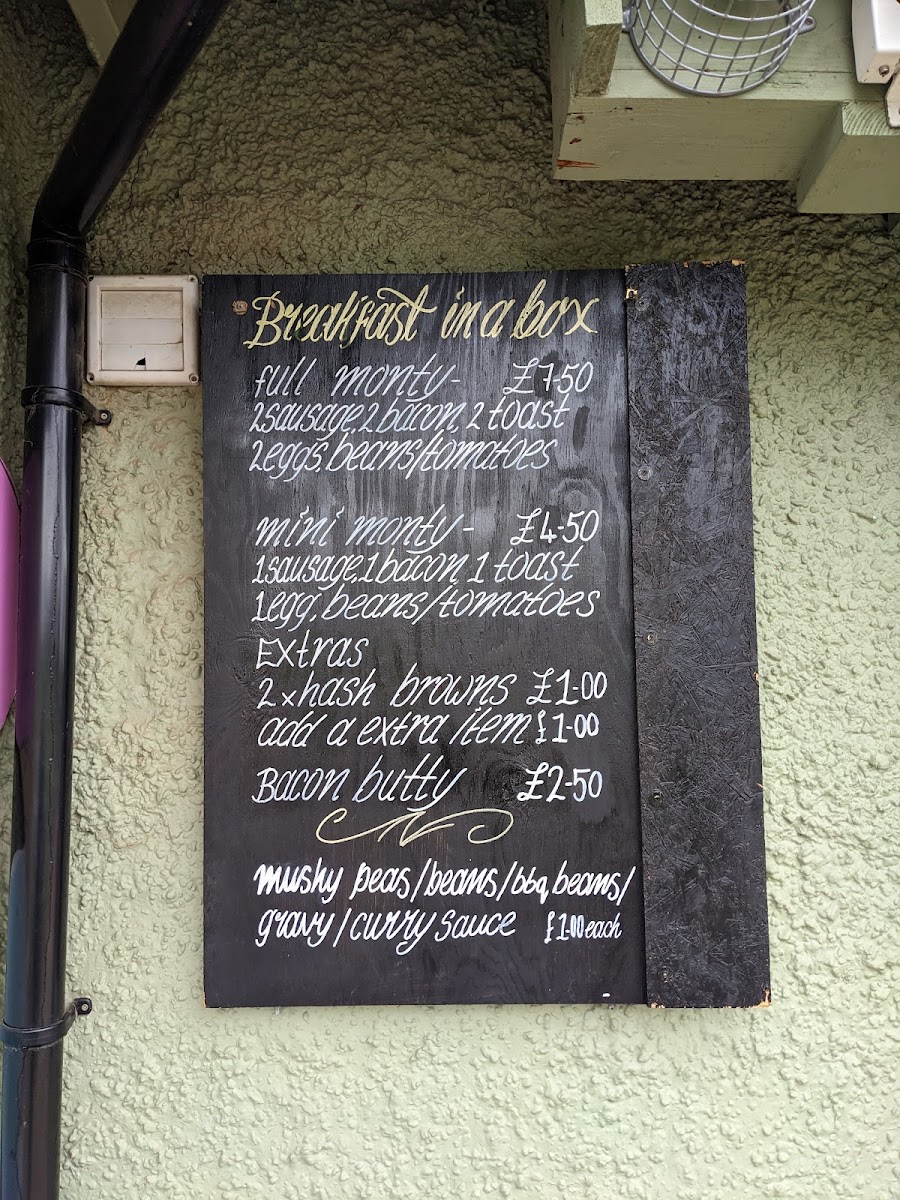 Breakfast in a box
full monty- £7-50
2sausage,2bacon, 2 toast
2eggs, beans/tomatoes
mini monty- £4-50
1sausage,1bacon, 1 toast
1egg, beans/tomatoes
Extras
2xhash browns £1-00
add a extra item £1-00
Bacon butty £2-50
mushy peas/beans/bbq beans/
gravy/curry sauce £1-00 each